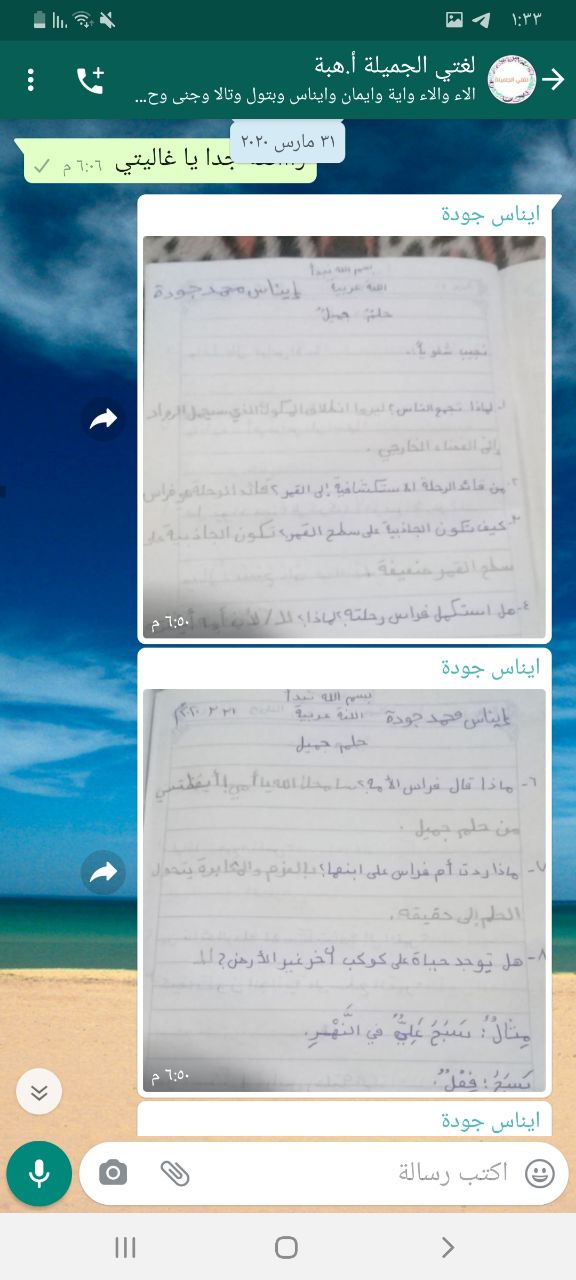 ١:٣٣
لغتي الجميلة أ.هبة
الاء والاء واية وايمان وايناس وبتول وتالا وجنى وح...
٣١ مارس ٢٠٢٠
جدا يا غاليتي
٦:٠٦ م
ايناس جودة
بسم الله نبدأ
اللغة عربية
إيناس محمد جودة
حلم جميل
نجيب شفوياً.
١- لماذا تجمع الناس؟ ليروا انطلاق المكوك الذي سيحمل الرواد
إلى الفضاء الخارجي.
٢- من قائد الرحلة الاستكشافية إلى القمر؟ قائد الرحلة هو فراس
٣- كيف تكون الجاذبية على سطح القمر؟ تكون الجاذبية على
سطح القمر ضعيفة
٤- هل استكمل فراس رحلته؟ لماذا؟ لا / لأن
٦:٥٠ م
ايناس جودة
بسم الله نبدأ
إيناس محمد جودة
اللغة عربية
حلم جميل
٦- ماذا قال فراس لأمه؟ سامحك الله يا أمي أيقظتني
من حلم جميل.
٧- ماذا ردت أم فراس على ابنها؟ بالعزم والمثابرة يتحول
الحلم إلى حقيقة.
٨- هل توجد حياة على كوكب آخر غير الأرض؟ لا.
مِثالٌ: سَبَحَ عَلِيٌّ في النَّهْرِ.
سَبَحَ: فِعْلٌ.
٦:٥٠ م
ايناس جودة
اكتب رسالة